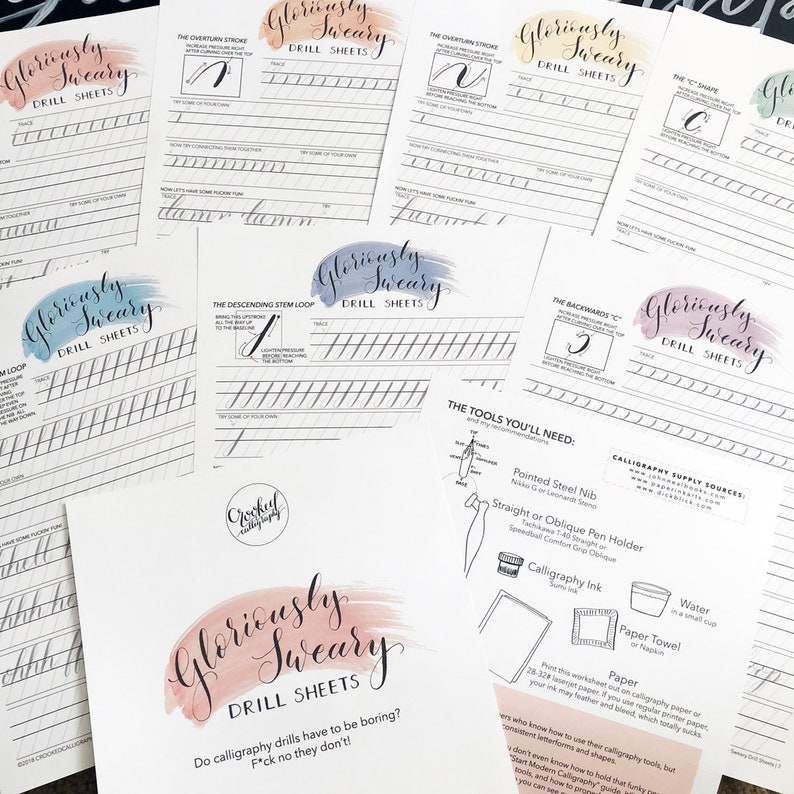 Gloriously
Sweary
DRILL SHEETS
TRACE
TRY
TRY SOME OF YOUR OWN
FUCKIN' FUN!
THE OVERTURN STROKE
INCREASE PRESSURE RIGHT
AFTER CURVING OVER THE TOP
Gloriously
Sweary
DRILL SHEETS
TRACE
TRY SOME OF YOUR OWN
NOW TRY CONNECTING THEM TOGETHER
TRY SOME OF YOUR OWN
NOW LET'S HAVE SOME FUCKIN' FUN!
TRACE
damn damn
THE OVERTURN STROKE
INCREASE PRESSURE RIGHT
AFTER CURVING OVER THE TOP
LIGHTEN PRESSURE RIGHT
BEFORE REACHING THE BOTTOM
Gloriously
Sweary
DRILL SHEETS
TRACE
TRY SOME OF YOUR OWN
NOW TRY CONNECTING THEM TOGETHER
TRY SOME OF YOUR OWN
NOW LET'S HAVE SOME FUCKIN' FUN!
TRACE
THE "C" SHAPE
INCREASE PRESSURE RIGHT
AFTER CURVING OVER THE TOP
C
LIGHTEN PRESSURE RIGHT
BEFORE REACHING THE BOTTOM
DRILL
TRACE
TRY SOME OF YOUR OWN
NOW LET'S HAVE SOME FUCKIN' FUN!
TRY
Gloriously
Sweary
DRILL SHEETS
LOOP
TRACE
THE WAY DOWN.
SOME FUCKIN' FUN!
©2018 CROOKEDCALLIGRAPH
THE DESCENDING STEM LOOP
BRING THIS UPSTROKE
ALL THE WAY UP
TO THE BASELINE
LIGHTEN PRESSURE
BEFORE REACHING
THE BOTTOM
Gloriously
Sweary
DRILL SHEETS
TRACE
TRY SOME OF YOUR OWN
THE BACKWARDS "C"
INCREASE PRESSURE RIGHT
AFTER CURVING OVER THE TOP
LIGHTEN PRESSURE RIGHT
BEFORE REACHING
THE BOTTOM
Gloriously
Sweary
DRILL SHEETS
TRACE
THE TOOLS YOU'LL NEED:
and my recommendations
TIP
SLIT
TINES
VENT
SHOULDER
BASE
CALLIGRAPHY SUPPLY SOURCES:
www.johnnealbooks.com
www.paperinkarts.com
www.dickblick.com
Pointed Steel Nib
Nikko G or Leonardt Steno
Straight or Oblique Pen Holder
Tachikawa T-40 Straight or
Speedball Comfort Grip Oblique
Calligraphy Ink
Sumi Ink
Water
in a small cup
Paper Towel
or Napkin
Paper
Print this worksheet out on calligraphy paper or
28-32# laserjet paper. If you use regular printer paper,
your ink may feather and bleed, which totally sucks.
ers who know how to use their calligraphy tools, but
consistent letterforms and shapes.
you don't even know how to hold that funky pen
"Start Modern Calligraphy" guide.
tools, and how to prope
Sweary Drill Sheets | 7
Crooked
calligraphy
Gloriously
Sweary
DRILL SHEETS
Do calligraphy drills have to be boring?
F*ck no they don't!